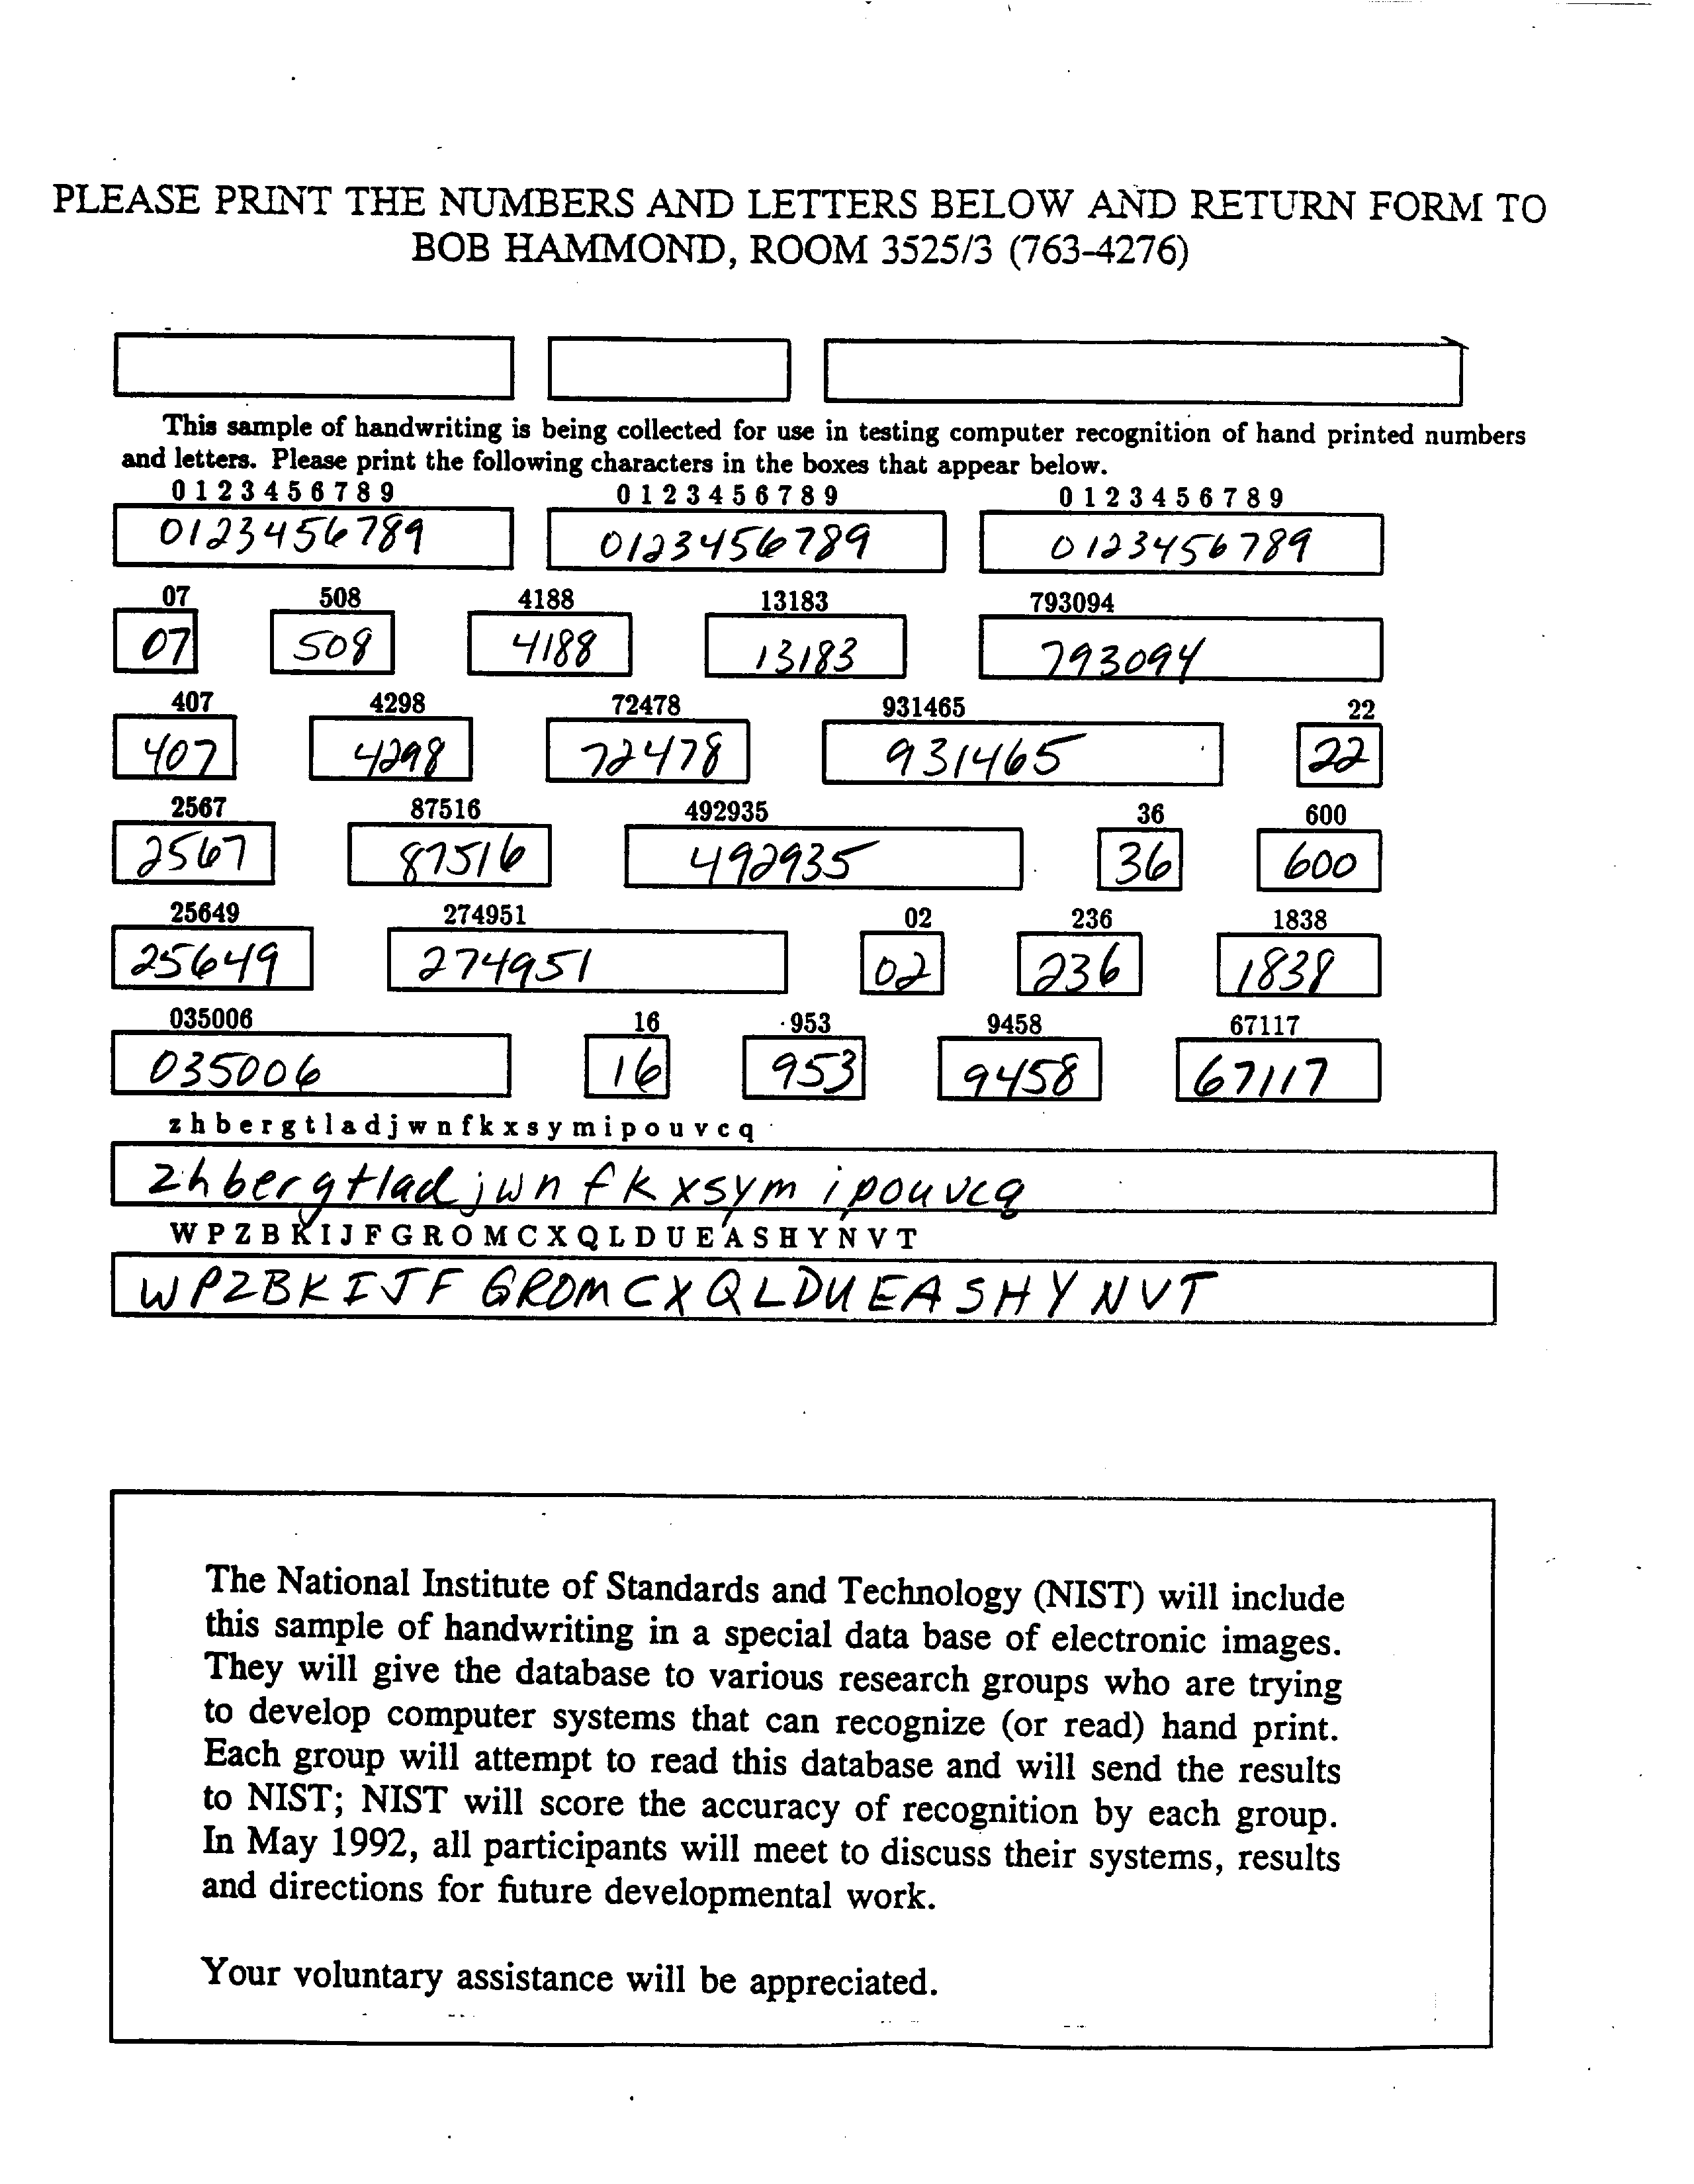 PLEASE PRINT THE NUMBERS AND LETTERS BELOW AND RETURN FORM TO
BOB HAMMOND, ROOM 3525/3 (763-4276)
This sample of handwriting is being collected for use in testing computer recognition of hand printed numbers
and letters. Please print the following characters in the boxes that appear below.
0 1 2 3 4 5 6 7 8 9 0 1 2 3 4 5 6 7 8 9 0 1 2 3 4 5 6 7 8 9
0123456789 0123456789 0123456789
07 508 4188 13183 793094
07 508 4188 13183 793094
407 4298 72478 931465 22
407 4298 72478 931465 22
2567 87516 492935 36 600
2567 87516 492935 36 600
25649 274951 02 236 1838
25649 274951 02 236 1838
035006 16 953 9458 67117
035006 16 953 9458 67117
z h b e r g t l a d j w n f k x s y m i p o u v c q
zhbergtladjwnfkxsymipouvcq
W P Z B K I J F G R O M C X Q L D U E A S H Y N V T
WPZBKIJFGROMCXQLDUEASHYNVT
The National Institute of Standards and Technology (NIST) will include
this sample of handwriting in a special data base of electronic images.
They will give the database to various research groups who are trying
to develop computer systems that can recognize (or read) hand print.
Each group will attempt to read this database and will send the results
to NIST; NIST will score the accuracy of recognition by each group.
In May 1992, all participants will meet to discuss their systems, results
and directions for future developmental work.
Your voluntary assistance will be appreciated.